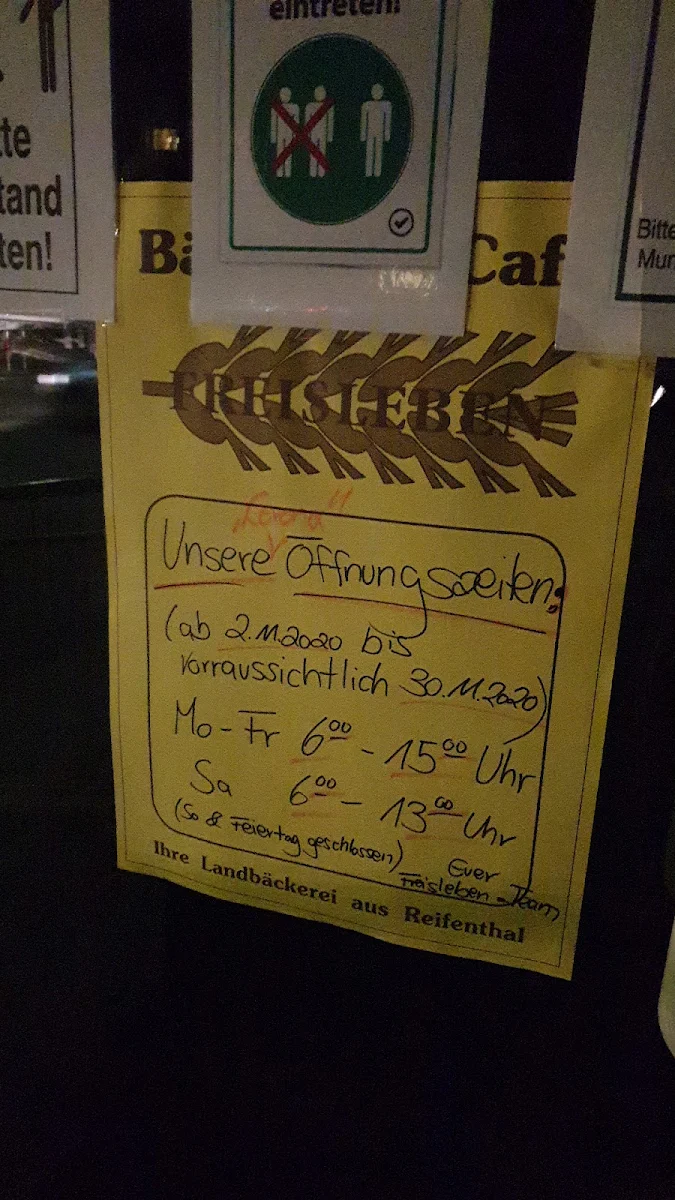 eintreten!
tte
tand
ten!
Bitte
Mun
Bä
Caf
FREISLEBEN
"Corona"
Unsere Öffnungszeiten:
(ab 2.11.2020 bis
vorraussichtlich 30.11.2020)
Mo-Fr 6⁰⁰ - 15⁰⁰ Uhr
Sa 6⁰⁰ - 13⁰⁰ Uhr
(So & Feiertag geschlossen)
Euer
Freisleben-Team
Ihre Landbäckerei aus Reifenthal